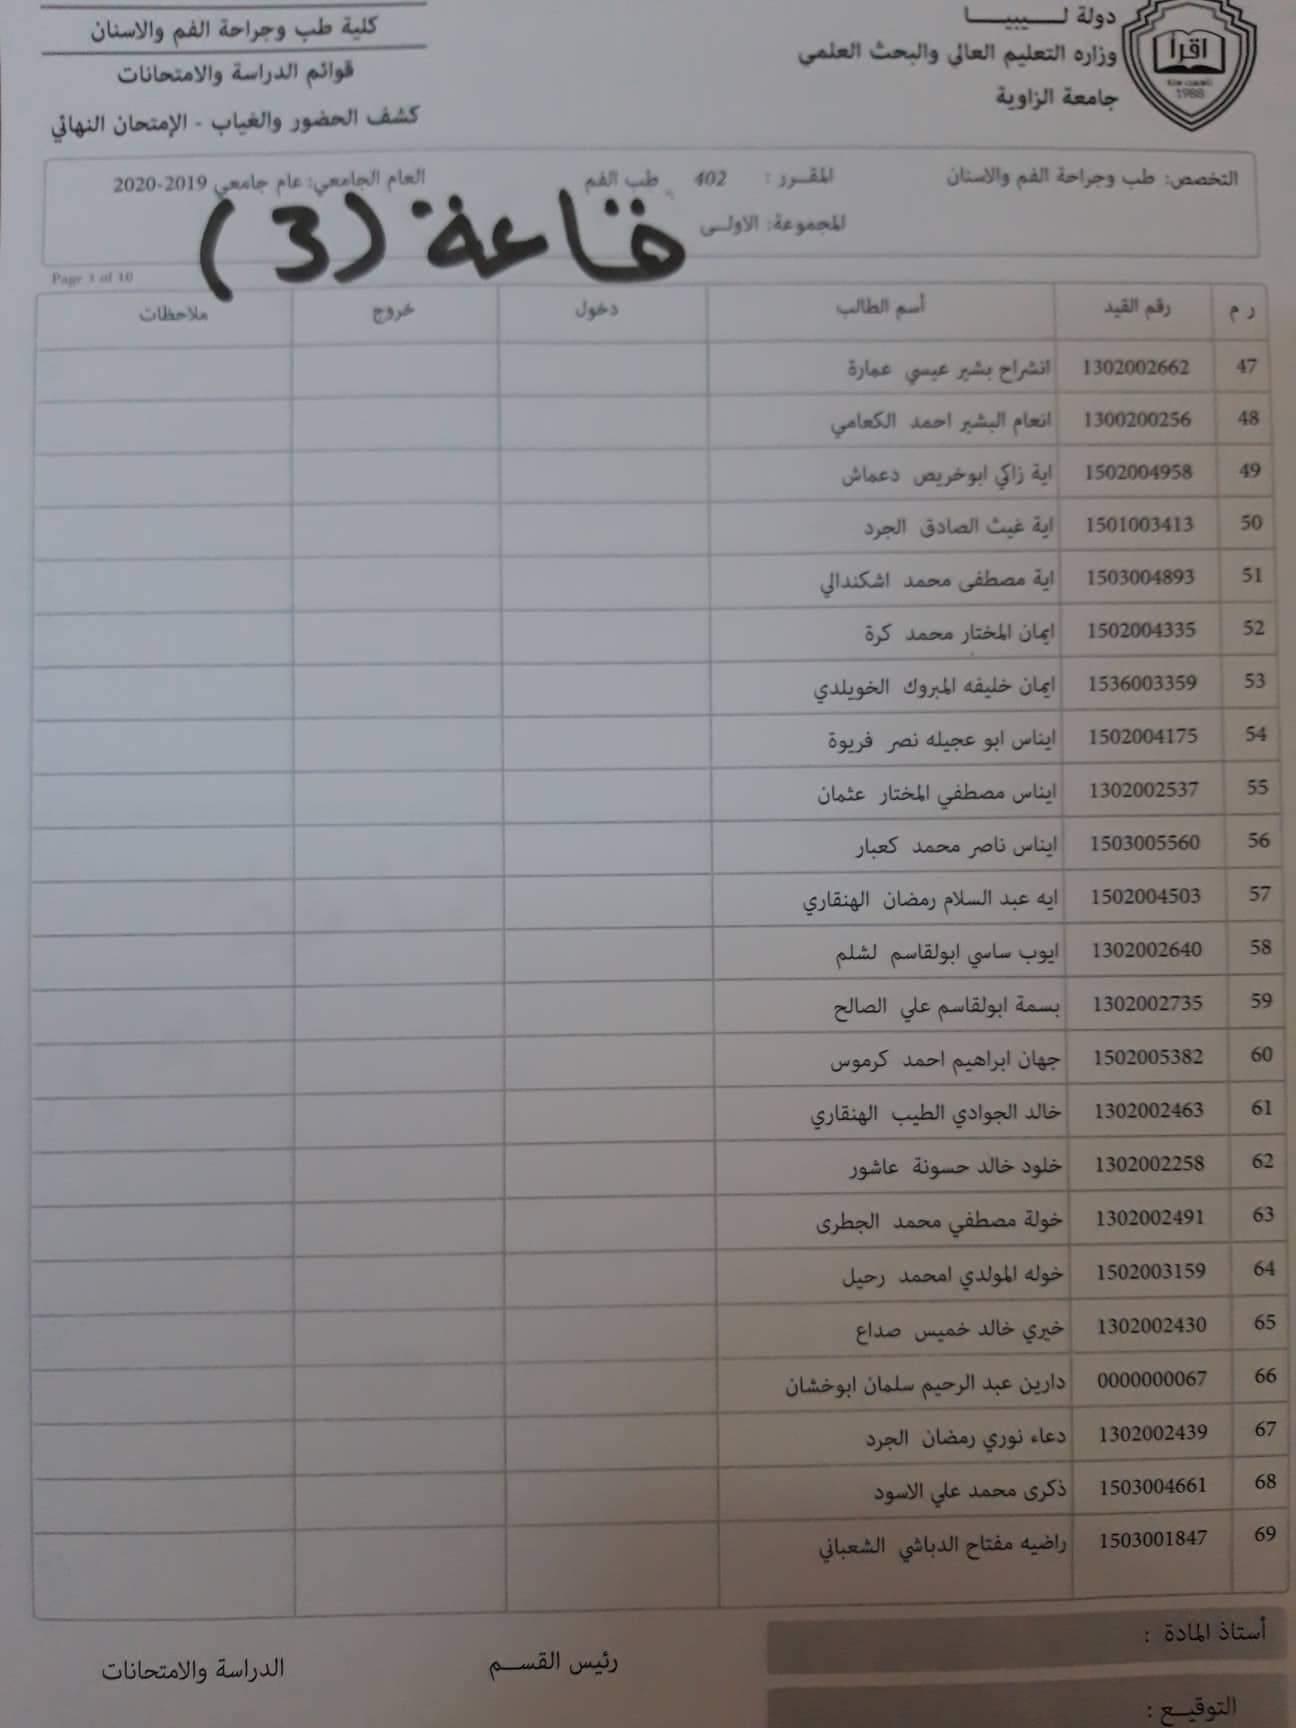 دولة لـــيبيـــــا
وزاره التعليم العالي والبحث العلمي
جامعة الزاوية
اقرأ
1988
كلية طب وجراحة الفم والاسنان
قوائم الدراسة والامتحانات
كشف الحضور والغياب - الإمتحان النهائي
التخصص: طب وجراحة الفم والاسنان المقــرر : 402 طب الفم العام الجامعي: عام جامعي 2019-2020
المجموعة: الاولـى
قاعة (3)
Page 3 of 10
ر م رقم القيد أسم الطالب دخول خروج ملاحظات
47 1302002662 انشراح بشير عيسي عمارة
48 1300200256 انعام البشير احمد الكعامي
49 1502004958 اية زاكي ابوخريص دعماش
50 1501003413 اية غيث الصادق الجرد
51 1503004893 اية مصطفى محمد اشكندالي
52 1502004335 ايمان المختار محمد كرة
53 1536003359 ايمان خليفه المبروك الخويلدي
54 1502004175 ايناس ابو عجيله نصر فريوة
55 1302002537 ايناس مصطفي المختار عثمان
56 1503005560 ايناس ناصر محمد كعبار
57 1502004503 ايه عبد السلام رمضان الهنقاري
58 1302002640 ايوب ساسي ابولقاسم لشلم
59 1302002735 بسمة ابولقاسم علي الصالح
60 1502005382 جهان ابراهيم احمد كرموس
61 1302002463 خالد الجوادي الطيب الهنقاري
62 1302002258 خلود خالد حسونة عاشور
63 1302002491 خولة مصطفي محمد الجطرى
64 1502003159 خوله المولدي امحمد رحيل
65 1302002430 خيري خالد خميس صداع
66 0000000067 دارين عبد الرحيم سلمان ابوخشان
67 1302002439 دعاء نوري رمضان الجرد
68 1503004661 ذكرى محمد علي الاسود
69 1503001847 راضيه مفتاح الدباشي الشعباني
أستاذ المادة :
رئيس القســم
الدراسة والامتحانات
التوقيــع :